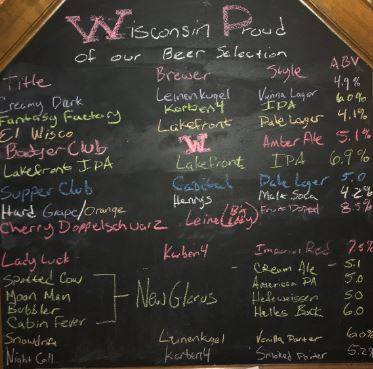 Wisconsin Proud
of our Beer Selection
Title Brewer Style ABV
Creamy Dark Leinenkugel Lager 4.9%
Fantasy Factory Karben4 IPA 6.0%
El Wisco Lakefront Pale Lager 4.1%
Badger Club W Amber Ale 5.1%
Lakefront IPA Lakefront IPA 6.9%
Supper Club Capital Pale Lager 5.0
Hard Grape/Orange Henrys Malt Soda 4.2%
Cherry Doppelschwarz Leine (Big Eddy) 8.5%
Lady Luck Karben4 Imperial Red
Spotted Cow Cream Ale - 5.1
Moon Man New Glarus American PA 5.0
Bubbler Hefeweissen 5.0
Cabin Fever Helles Bock 6.0
Snowdrift Leinenkugel Vanilla Porter 6.0%
Night Call Karben4 Smoked Porter 5.2%